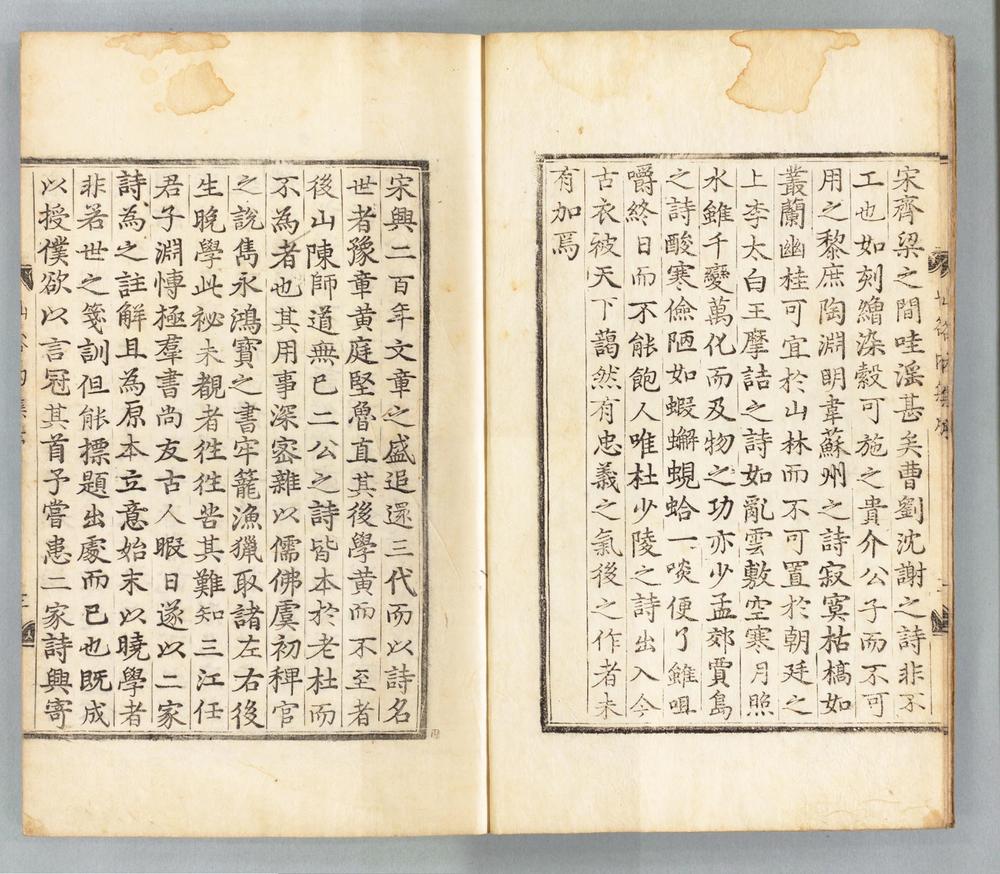 宋齊梁之間哇淫甚矣曹劉沈謝之詩非不
工也如刻繒染縠可施之貴介公子而不可
用之黎庶陶淵明韋蘇州之詩寂寞枯槁如
叢蘭幽桂可宜於山林而不可置於朝廷之
上李太白王摩詰之詩如亂雲敷空寒月照
水雖千變萬化而及物之功亦少孟郊賈島
之詩酸寒儉陋如蝦蠏蜆蛤一啖便了雖咀
嚼終日而不能飽人唯杜少陵之詩出入今
古衣被天下藹然有忠義之氣後之作者未
有加焉
宋興二百年文章之盛追還三代而以詩名
世者豫章黄庭堅魯直其後學黄而不至者
後山陳師道無已二公之詩皆本於老杜而
不為者也其用事深密雜以儒佛虞初稗官
之說雋永鴻寶之書牢籠漁獵取諸左右後
生晚學此祕未覩者徃徃苦其難知三江任
君子淵愽極羣書尚友古人暇日遂以二家
詩為之註解且為原本立意始末以曉學者
非若世之箋訓但能標題出處而已也既成
以授僕欲以言冠其首予嘗患二家詩興寄